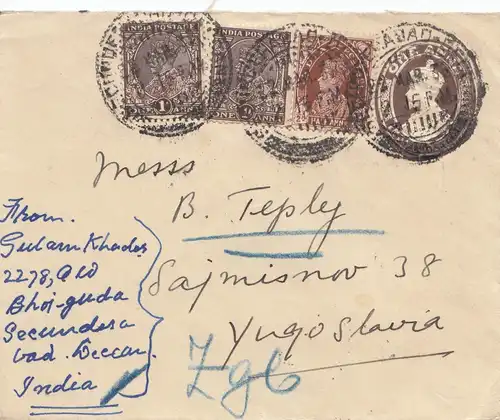 INDIA POSTAGE
INDIA POSTAGE
1
ONE ANNA
ONE ANNA
Messs
B. Teply
Sajmisnov 38
Yugoslavia
Zgb
From.
Gulam Khader
2278, Old
Bhoi-guda
Secundera
bad. Deccan.
India